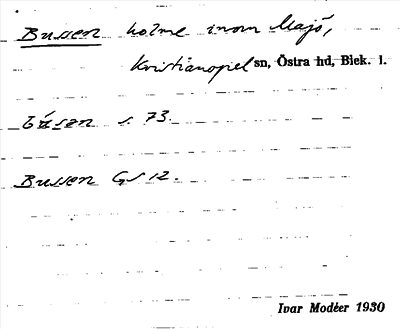 Bussen holme inom Majö,
Kristianopel sn, Östra hd, Blek. l.
Busen s. 73.
Bussen GS 12.
Ivar Modéer 1930